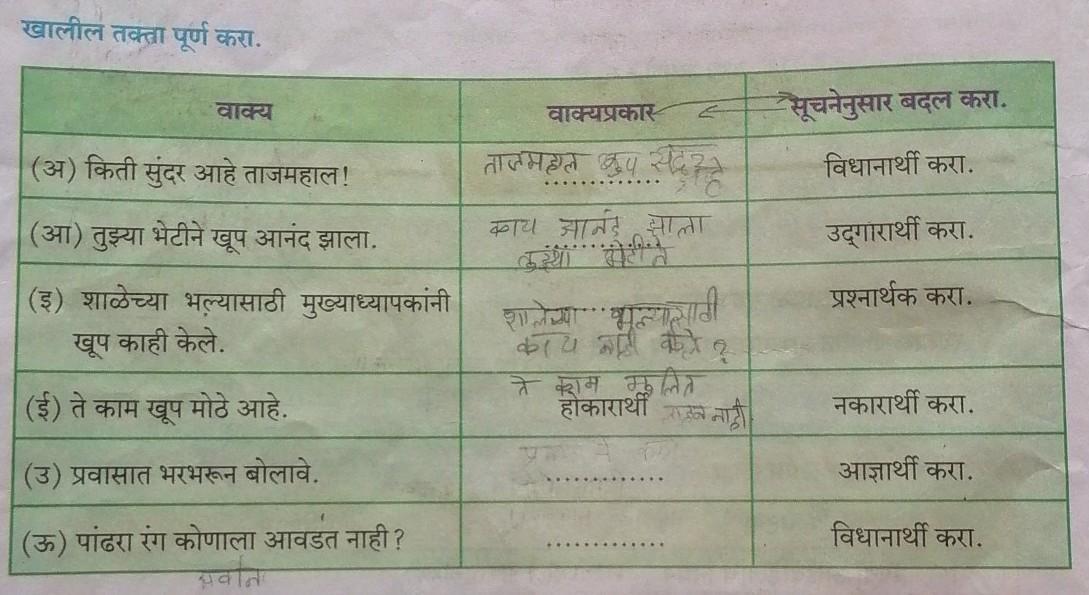 खालील तक्ता पूर्ण करा.
वाक्य वाक्यप्रकार सूचनेनुसार बदल करा.
(अ) किती सुंदर आहे ताजमहाल! ताजमहाल खुप सुंदर आहे ............. विधानार्थी करा.
(आ) तुझ्या भेटीने खूप आनंद झाला. काय आनंद झाला उद्‌गारार्थी करा.
तुझ्या भेटीने
(इ) शाळेच्या भल्यासाठी मुख्याध्यापकांनी शाळेच्या भल्यासाठी प्रश्नार्थक करा.
खूप काही केले. काय नाही केले ?
ते काम मुळीच
(ई) ते काम खूप मोठे आहे. होकारार्थी लहान नाही. नकारार्थी करा.
(उ) प्रवासात भरभरून बोलावे. ............. आज्ञार्थी करा.
(ऊ) पांढरा रंग कोणाला आवडत नाही? ............. विधानार्थी करा.